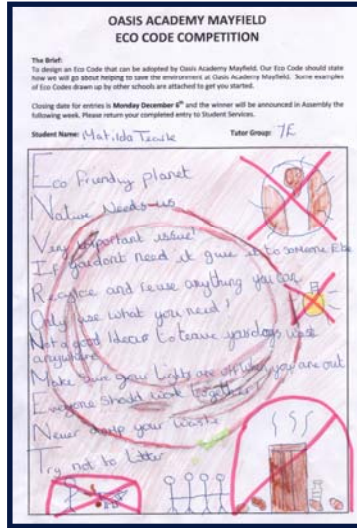 OASIS ACADEMY MAYFIELD
ECO CODE COMPETITION
The Brief:
To design an Eco Code that can be adopted by Oasis Academy Mayfield. Our Eco Code should state
how we will go about helping to save the environment at Oasis Academy Mayfield. Some examples
of Eco Codes drawn up by other schools are attached to get you started.
Closing date for entries is Monday December 6th and the winner will be announced in Assembly the
following week. Please return your completed entry to Student Services.
Student Name: Matilda Tutor Group: 7E
Eco friendly planet
Nature Needs us
Very important issue!
If you dont need it give it to someone Else
and reuse anything you can
Only use what you need!
Not a good to leave
anywhere
Make sure your lights are off when you are out
Everyone should work together!
Never dump your waste
Try not to litter